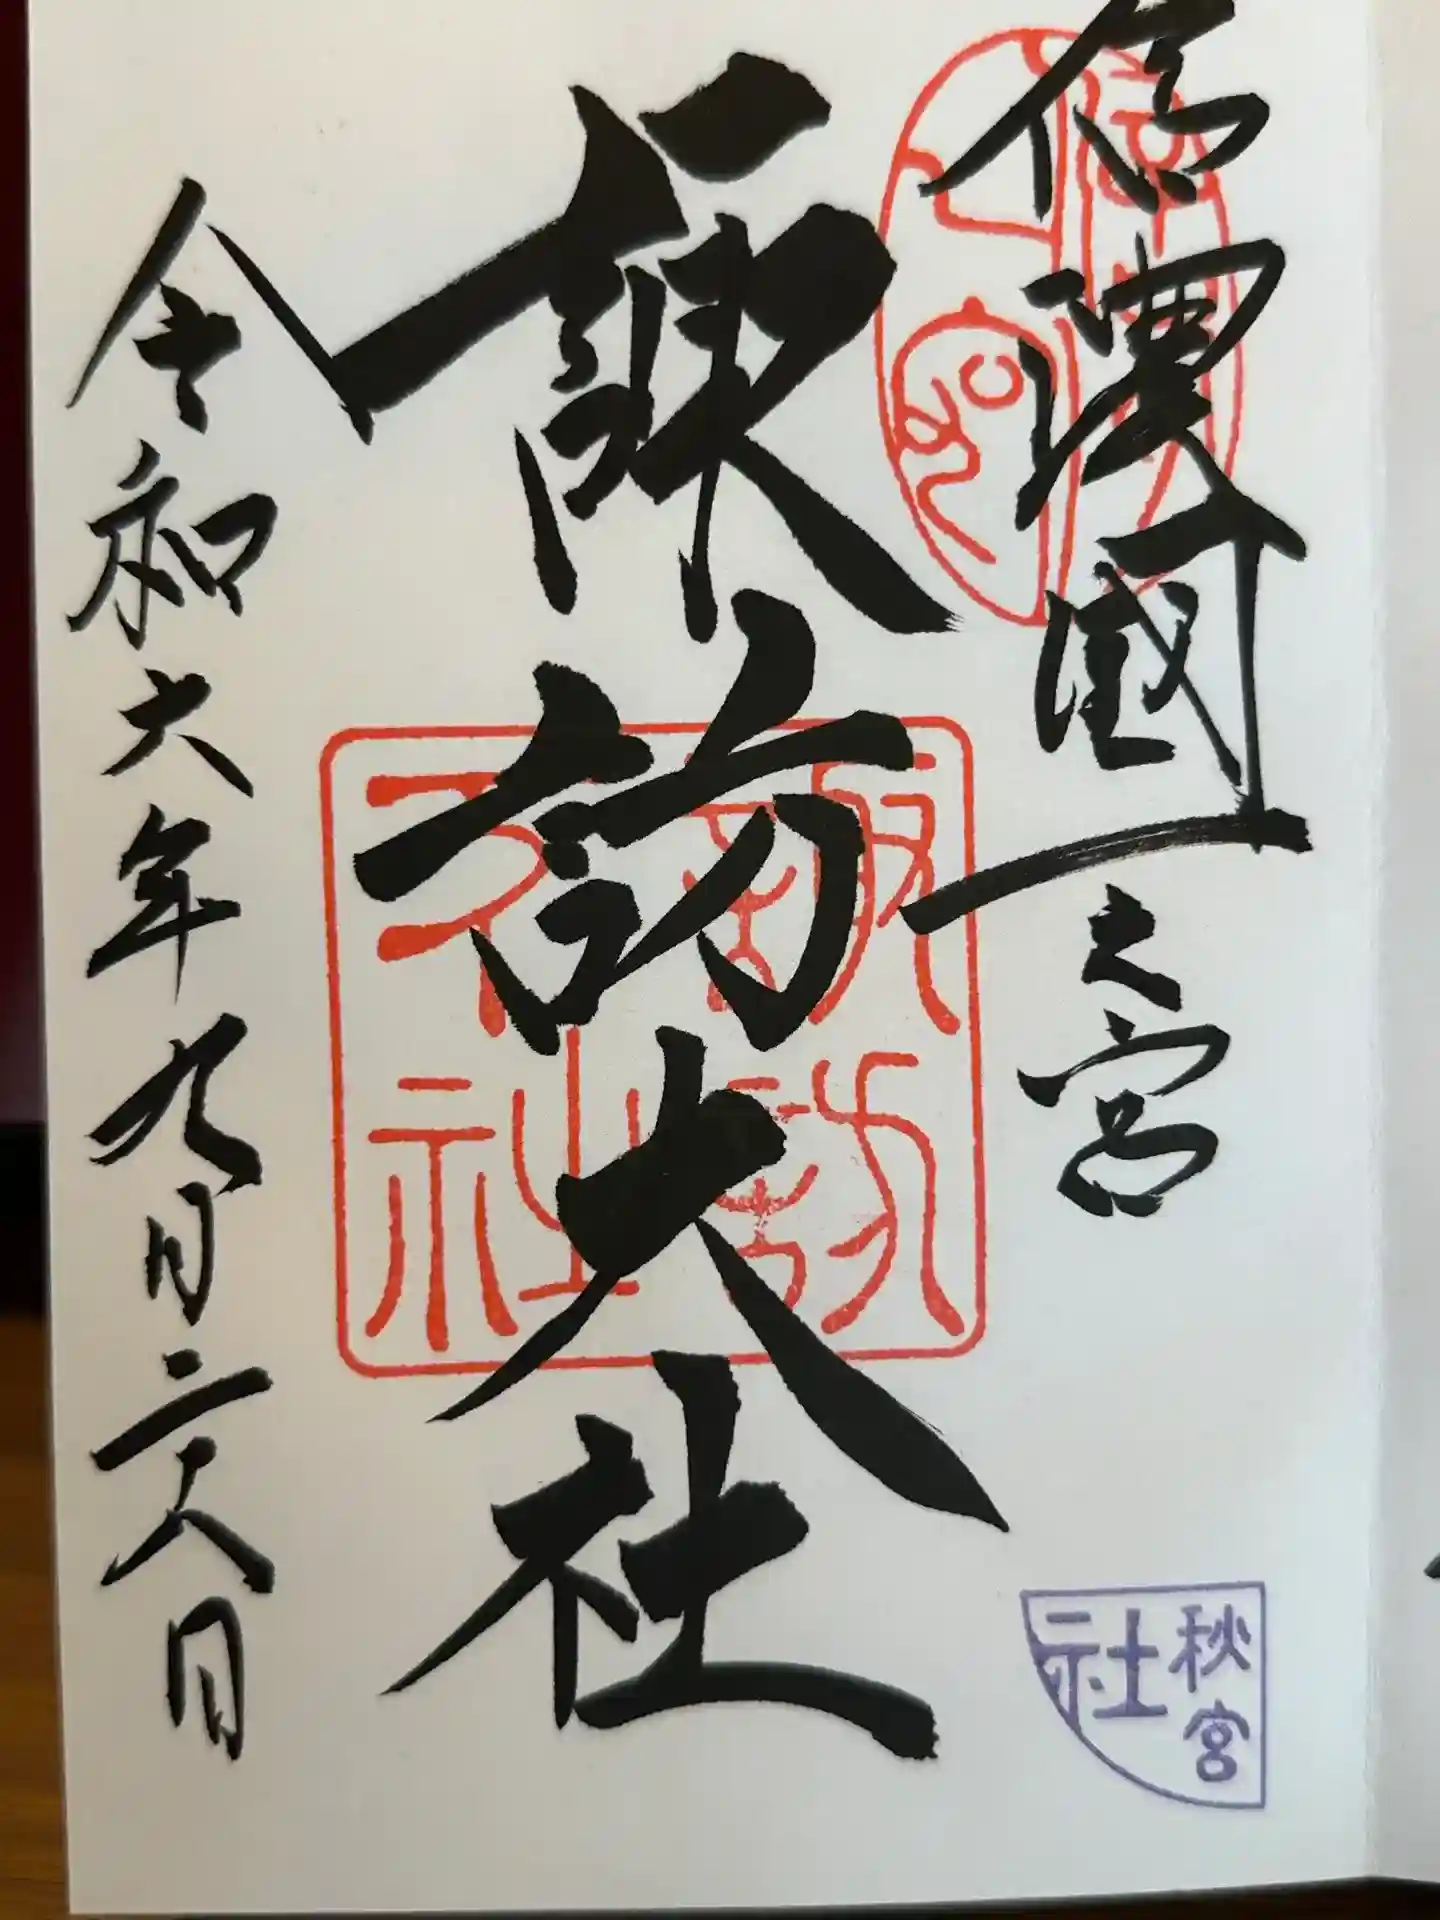 信濃國一之宮
諏訪大社
令和六年九月二六日
諏訪大社
秋宮
社